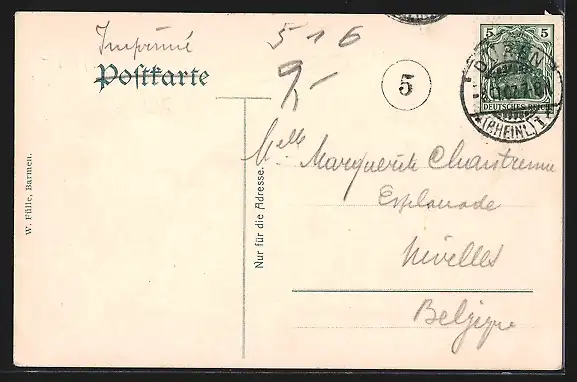 Imprimé
Postkarte
516
9,-
5
5 5
DEUTSCHES REICH
DÜREN
(RHEINL.) 1
Melle Marguerite Chantrenne
Esplanade
Nivelles
Belgique
Nur für die Adresse.
W. Fülle, Barmen.